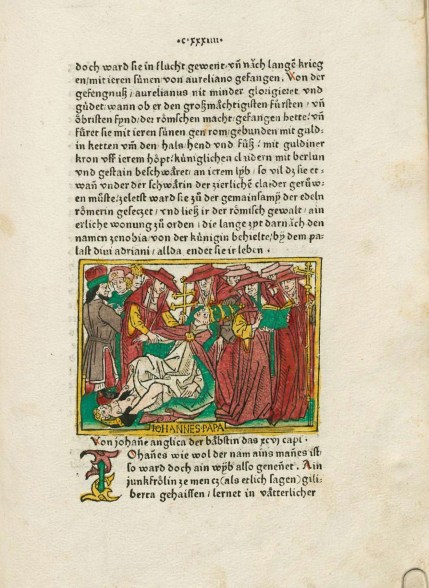 ·c·xxxiiii·
doch ward sie in flucht gewent/ vñ nǎch langē krieg
en/mit ieren sünen von aureliano gefangen. Von der
gefengnuß/ aurelianus nit minder glorigieret vnd
gůdet/ wann ob er den großmåchtigisten fürsten/ vñ
öbristen fynd/ der römschen macht/gefangen hette/ vñ
füret sie mit ieren sünen gen rom/gebunden mit guld-
in ketten vm̄ den hals/hend vnd füß/ mit guldiner
kron vff ierem höpt/ küniglichen claidern mit berlun
vnd gestain beschwåret/ an ierem lyb/ so vil dz sie et-
wañ vnder der schwårin der zierliche claider gerůw-
en můste/zeletst ward sie zů der gemainsamy der edeln
römerin gesetzet/ vnd ließ ir der römisch gewalt/ ain
erliche wonung zů orden/ die lange zyt darnǎch den
namen zenobia/ von der künigin behielte/ by dem pa-
last diui adriani/ allda endet sie ir leben.
IOHANNES·PAPA
Von johañe anglica der båbstin das xcvj capi.
Iohañes wie wol der nam ains mañes ist/
so ward doch ain wyb also genenet. Ain
junkfrölin ze mencz(als etlich sagen) gili-
berta gehaissen/ lernet in våtterlicher